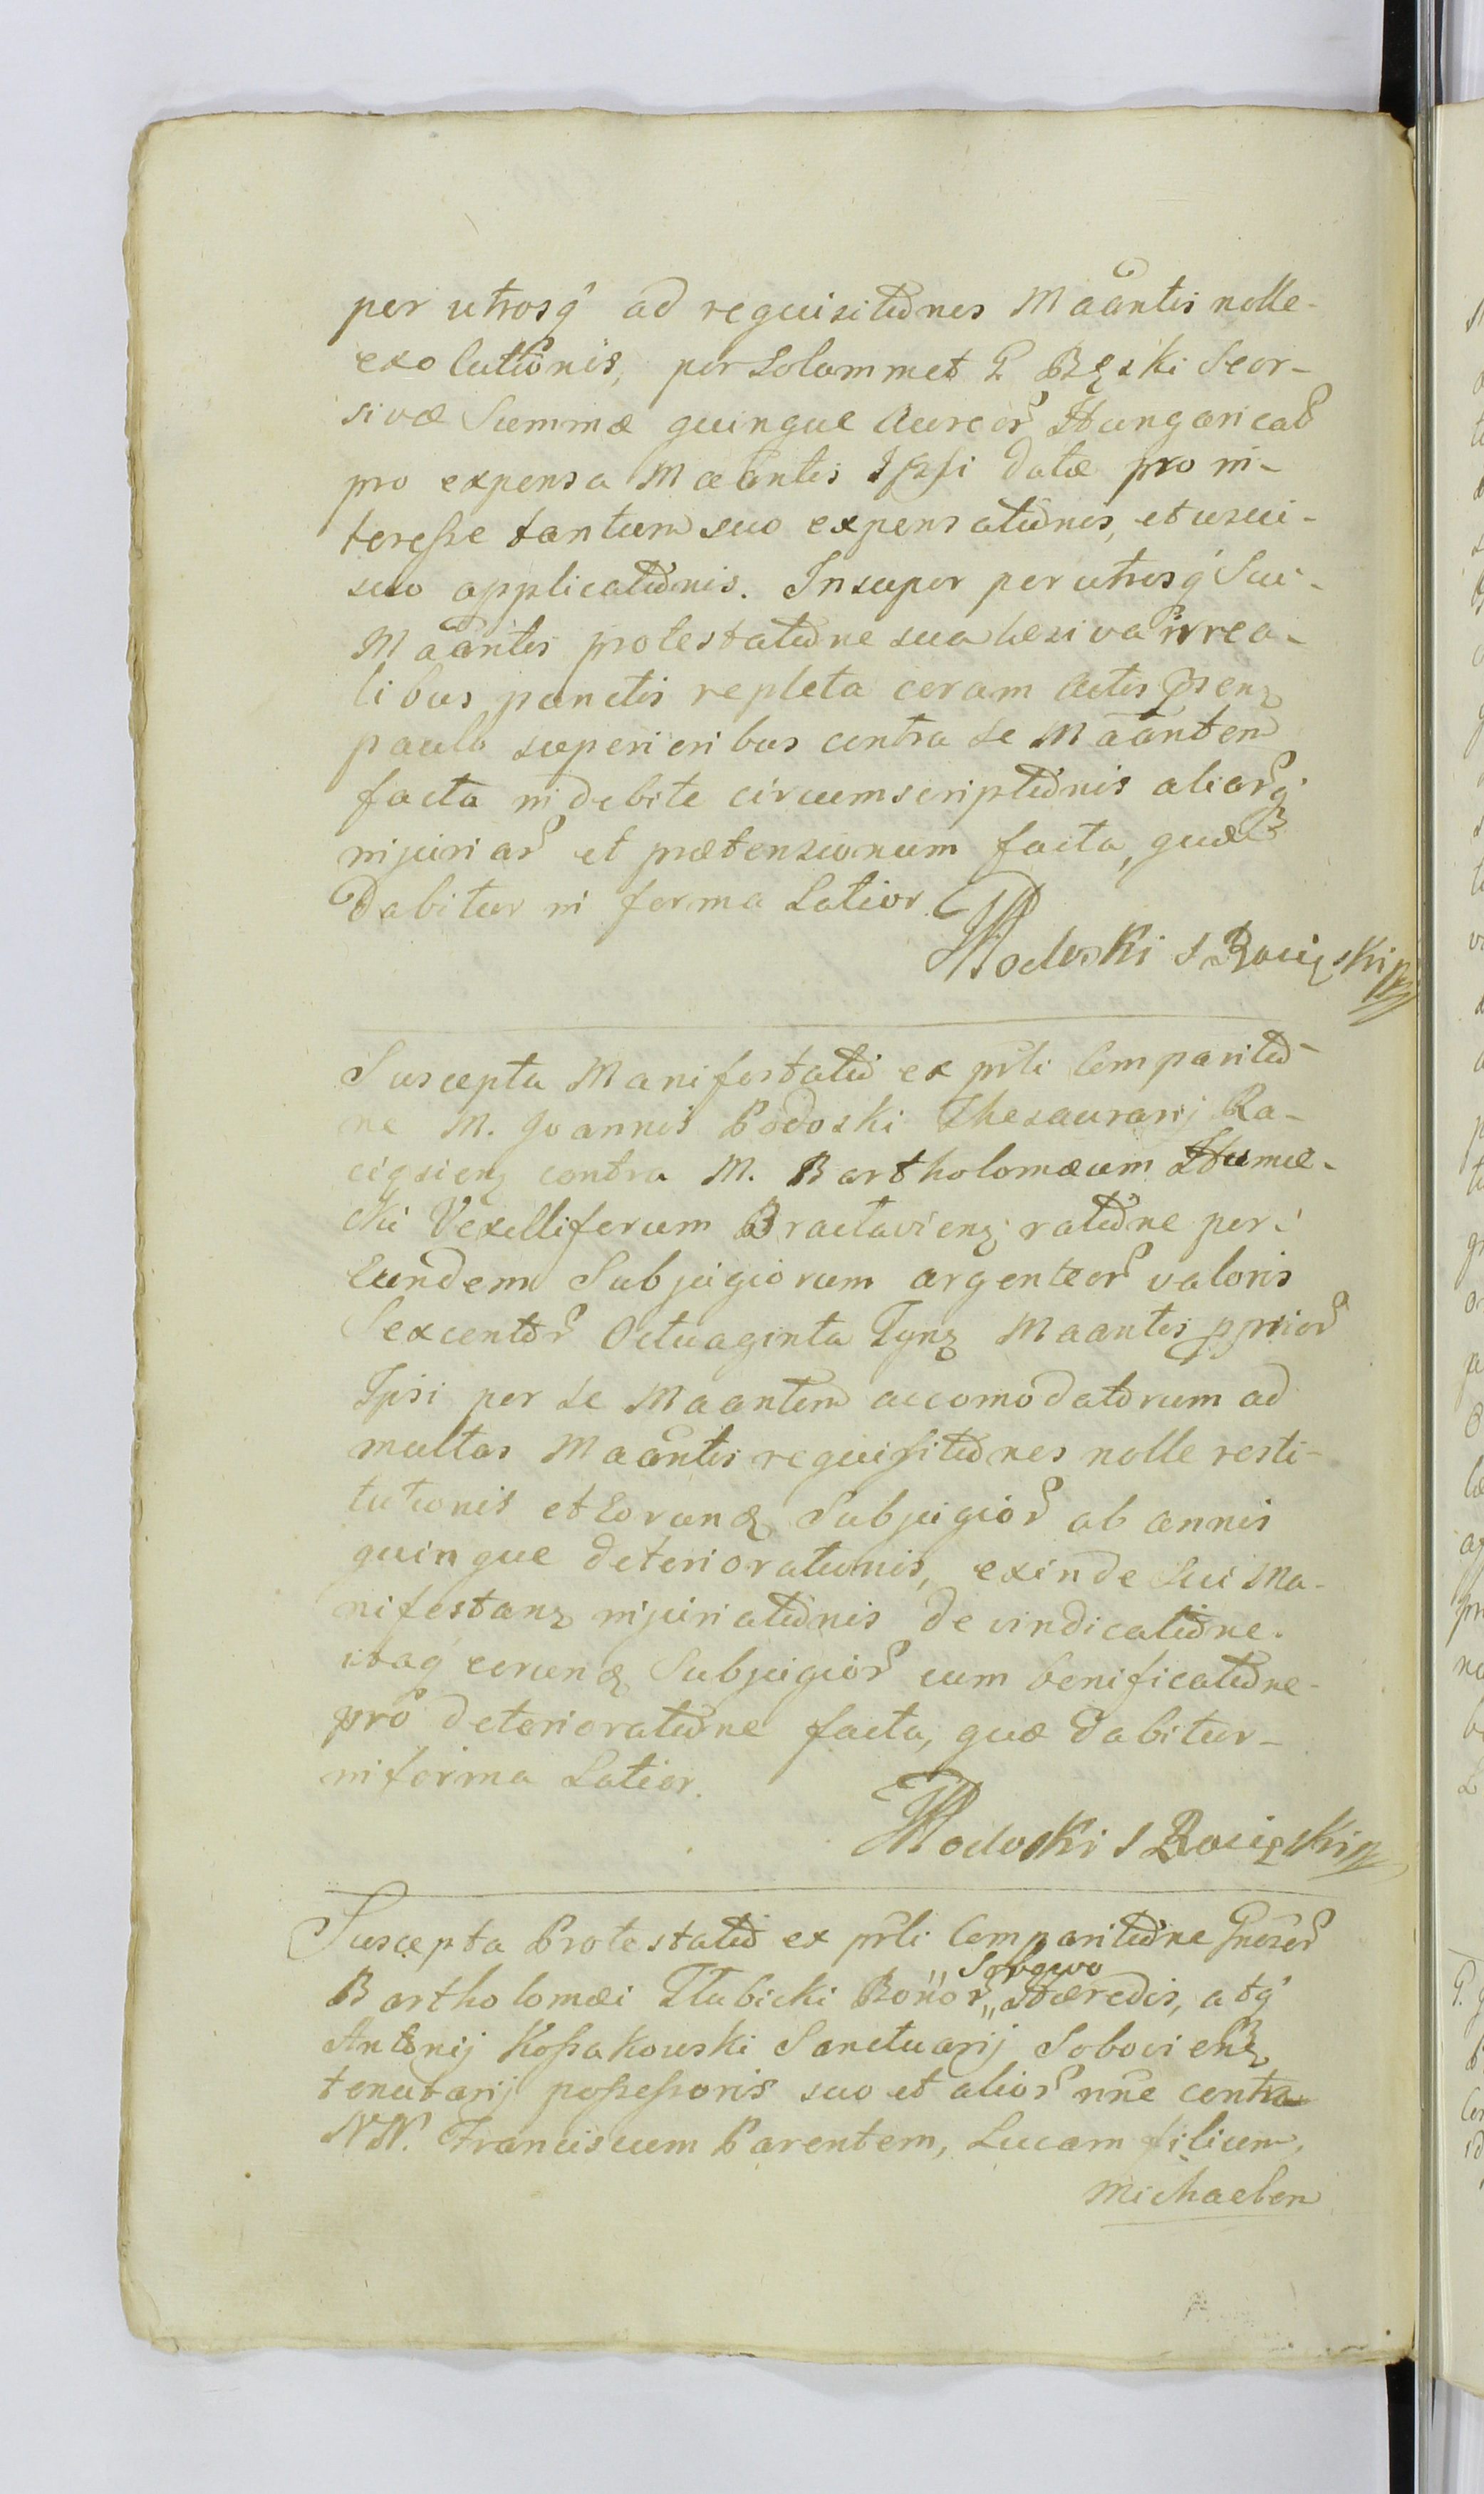 per utrosq̃ ad requisitiõnes Maãntis nolle-
exolutiõnis, per Solummet G Bęski Seor-
sivæ Summæ quinque Aureor̃ Hungaricał
pro expensa Maãntis Ipsi datæ pro in-
teresse tantum suo expensatiõnis, et usui-
suo applicatiõnis. Insuper per utrosq̃ Sui-
Maãntis protestatiõne sua læsiva irrea-
libus punctis repleta coram Actis p̃senz
paulo superioribus contra se Maãntem
facta indebite circumscriptiõnis aliarq̃
injuriar̃ et prætensionum facta, quæ
Dabitur in forma Latior.
Podoski S Raciąski
Suscepta Manifestatiõ ex pr̃li Comparitiõ-
ne M. Joannis Podoski Thesaurarij Ra-
ciąsienz contra M. Bartholomæum Humie-
cki Vexilliferum Braclavienz ratiõne per
Eundem Subjugiorum argenteor̃ valoris
Sexcentor̃ Octuaginta Tynz Maantis pprior̃
Ipsi per se Maantem accomodatorum ad
multas Maãntis requisitiõnes nolle resti-
tutionis et Eorund Subjugior̃ ab annis
quinque deteriorationis, exinde Sui Ma-
nifestanz injuriatiõnis de vindicatiõne
itaq̃ eorund Subjugior̃ cum bonificatiõne-
pro deterioratiõne facta, quæ dabitur-
in forma Latior.
Podoski S Raciąski
Suscepta Protestatiõ ex pr̃li Comparitiõne Gnõsor̃
Bartholomæi Tłubicki Bonor̃ „Sobowo„ Hæredis, atq̃
Antonij Kossakowski Sanctuarij Sobovienz
tenutarij possessoris suo et alior̃ nñe contra
NN. Franciscum Parentem, Lucam filium,
Michaelem